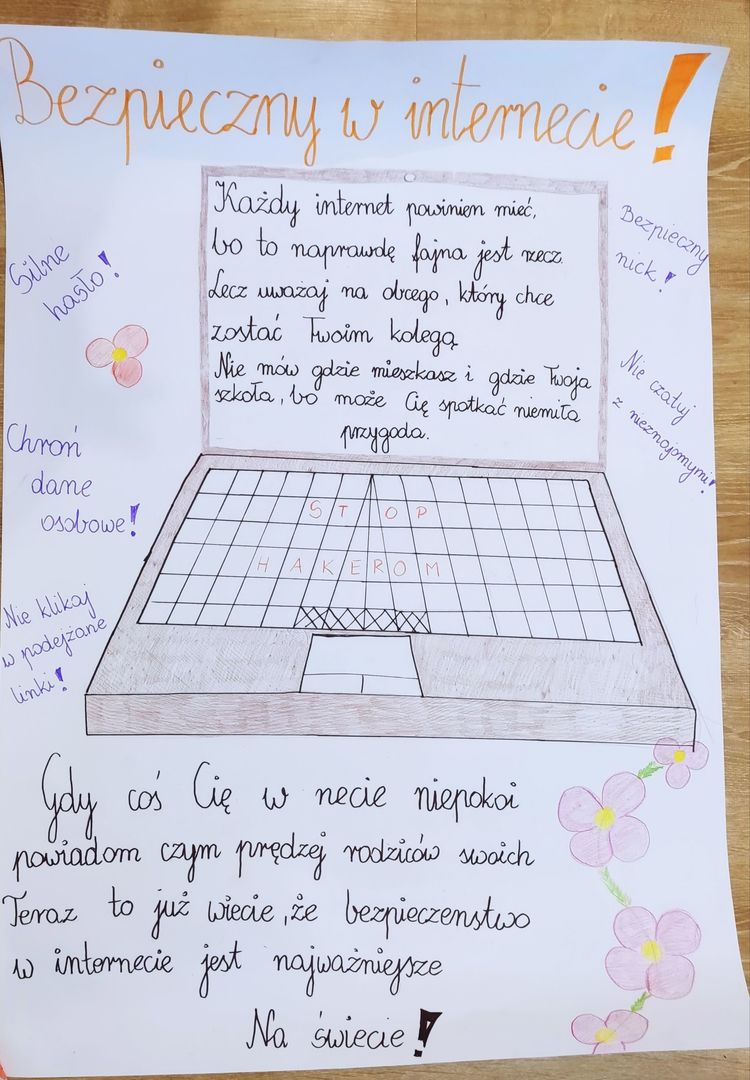 Bezpieczny w internecie!
Każdy internet powinien mieć,
bo to naprawdę fajna jest rzecz.
Lecz uważaj na obcego, który chce
zostać Twoim kolegą
Nie mów gdzie mieszkasz i gdzie Twoja
szkoła, bo może Cię spotkać niemiła
przygoda.
Silne
hasło!
Chroń
dane
osobowe!
Nie klikaj
w podejżane
linki!
Bezpieczny
nick!
Nie czatuj
z nieznajomymi!
STOP
HAKEROM
Gdy coś Cię w necie niepokoi
powiadom czym prędzej rodziców swoich
Teraz to już wiecie, że bezpieczenstwo
w internecie jest najważniejsze
Na świecie!